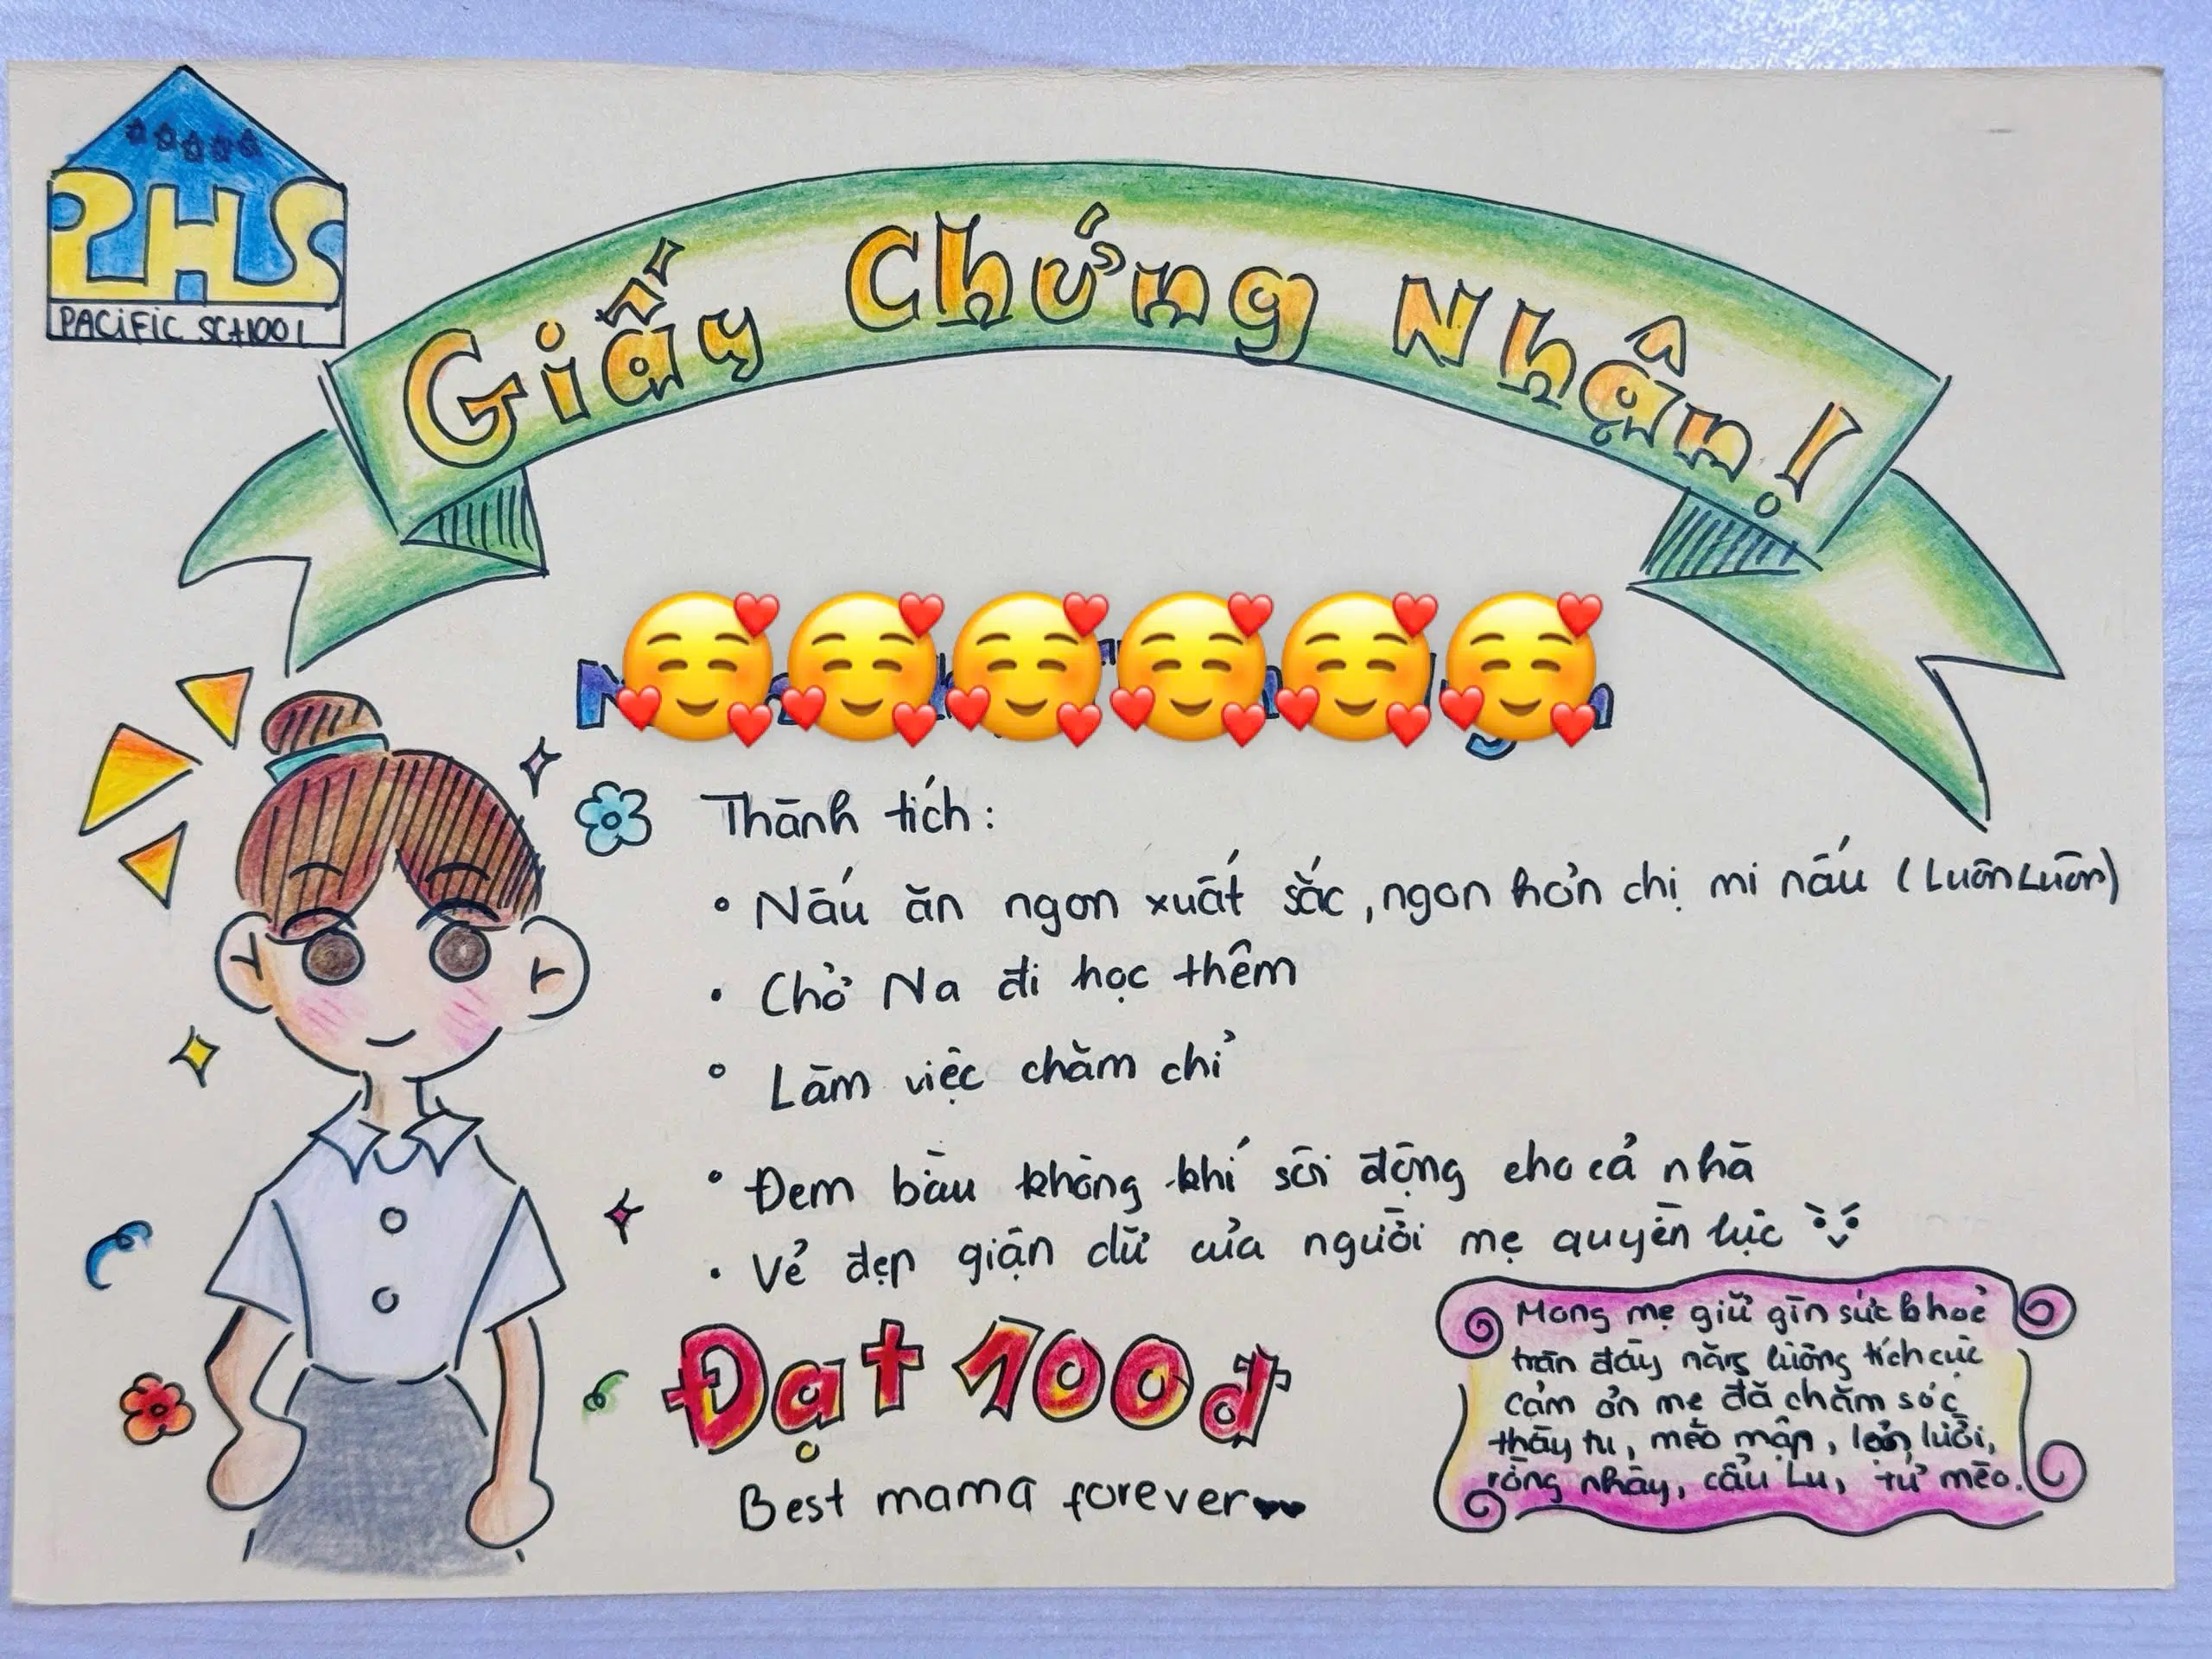 PHS
PACIFIC SCHOOL
Giấy Chứng Nhận!
Thành tích:
Nấu ăn ngon xuất sắc, ngon hơn chị mi nấu (Luôn Luôn)
Chở Na đi học thêm
Làm việc chăm chỉ
Đem bầu không khí sôi động cho cả nhà
Vẻ đẹp giận dữ của người mẹ quyền lực
Đạt 100đ
Best mama forever
Mong mẹ giữ gìn sức khoẻ
tràn đầy năng lượng tích cực
cảm ơn mẹ đã chăm sóc
thầy tu, mèo mập, lợn lười,
rồng nhây, cẩu Lu, tứ mèo.